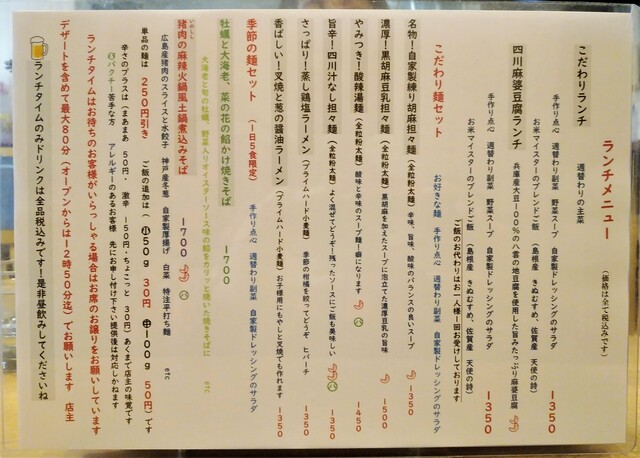 ランチメニュー
（価格は全て税込みです）
こだわりランチ
週替わりの主菜
手作り点心 週替わり副菜 野菜スープ 自家製ドレッシングのサラダ
お米マイスターのブレンドご飯 （島根産 きぬむすめ、佐賀産 天使の詩）
1350
四川麻婆豆腐ランチ
兵庫産大豆100％の八雲の地豆腐を使用した旨みたっぷり麻婆豆腐
手作り点心 週替わり副菜 野菜スープ 自家製ドレッシングのサラダ
お米マイスターのブレンドご飯 （島根産 きぬむすめ、佐賀産 天使の詩）
1350
ご飯のお代わりはお一人様一回お受けしております
こだわり麺セット
お好きな麺 手作り点心 週替わり副菜 自家製ドレッシングのサラダ
名物！自家製練り胡麻担々麺 （全粒粉太麺） 辛味、旨味、酸味のバランスの良いスープ
1350
濃厚！黒胡麻豆乳担々麺 （全粒粉太麺） 黒胡麻を加えたスープに泡立てた濃厚豆乳の旨味
1500
やみつき！酸辣湯麺 （全粒粉太麺） 酸味と辛味のスープ麺！癖になります
1450
旨辛！四川汁なし担々麺 （全粒粉太麺） よく混ぜてどうぞー残ったソースにご飯も美味しい
1350
さっぱり！蒸し鶏塩ラーメン （プライムハード小麦麺） 季節の柑橘を絞ってどうぞ ヒバーチ
1350
香ばしい！叉焼と葱の醤油ラーメン （プライムハード小麦麺） お子様用にもやしと叉焼でも作れます
1350
季節の麺セット （1日5食限定） 手作り点心 週替わり副菜 自家製ドレッシングのサラダ
牡蠣と大海老、菜の花の餡かけ焼きそば
1700
大海老と旬の牡蠣、野菜入りオイスターソース味の餡をカリッと焼いた焼きそばに etc
猪肉の麻辣火鍋風土鍋煮込みそば
1700
広島産猪肉のスライスと水餃子 神戸産冬葱 自家製厚揚げ 白菜 特注平打ち麺 etc
単品の麺は 250円引き ご飯の追加は（ 小50g 30円 中100g 50円）です
辛さのプラスは（まあまあ 50円・ 激辛 150円・ちょこっと 30円）あくまで店主の味覚です
パクチー苦手な方 アレルギーのあるお客様 先にお申し付け下さい提供後は対応しかねます
ランチタイムはお待ちのお客様がいらっしゃる場合はお席のお譲りをお願いしています
デザートを含めて最大80分（オープンからは12時50分迄）でお願いします 店主
ランチタイムのみドリンクは全品税込みです！是非昼飲みしてくださいね